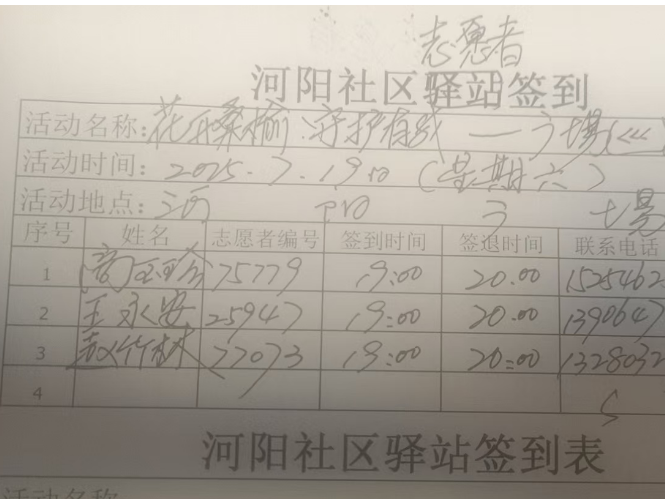 志愿者
河阳社区驿站签到
活动名称:花样桑榆·守护有我 — 广场(<<<
活动时间:2025.7.19日(星期六)
活动地点:河阳广场
序号 姓名 志愿者编号 签到时间 签退时间 联系电话
1 75779 19:00 20.00 1525462
2 王永安 25947 19:00 20.00 1390647
3 赵竹林 77073 19:00 20:00 1328032
4
河阳社区驿站签到表
活动名称